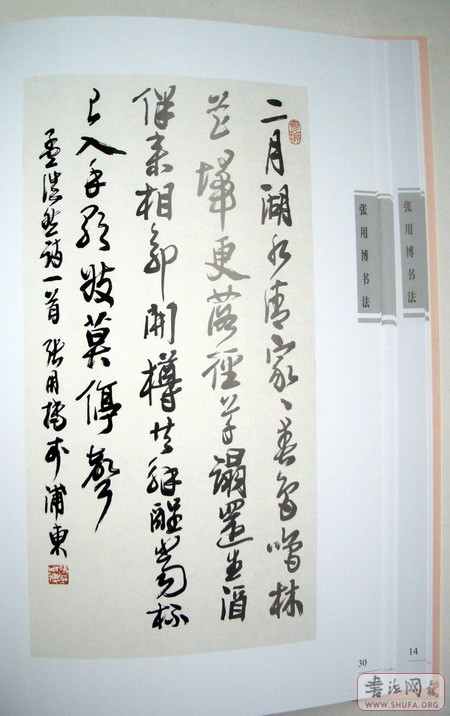 二月湖水清家〻春鳥鳴林
花埽更落徑草蹋還生酒
伴来相命開樽共解酲當杯
已入手歌妓莫停聲
孟浩然詩一首 張用博於浦東
张用博书法
张用博书法
30
14
书法网
WWW.SHUFA.ORG